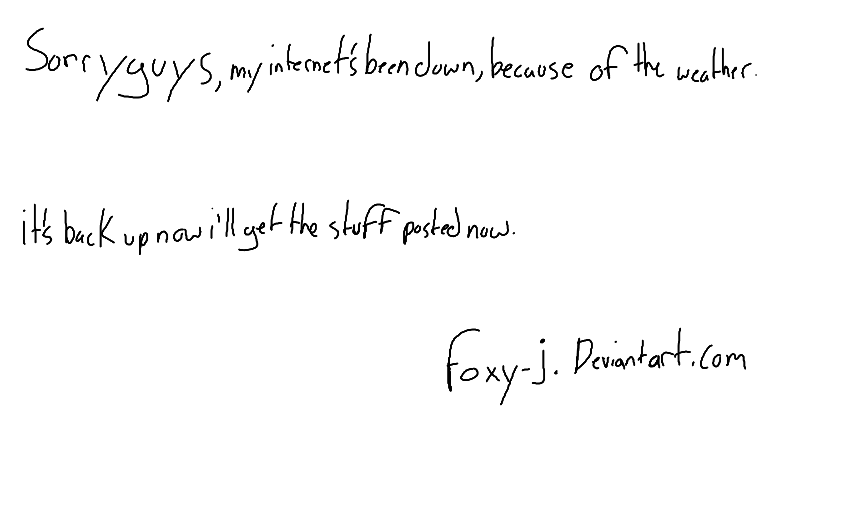 Sorry guys, my internet's been down, because of the weather.
it's back up now i'll get the stuff posted now.
foxy-j.Deviantart.com